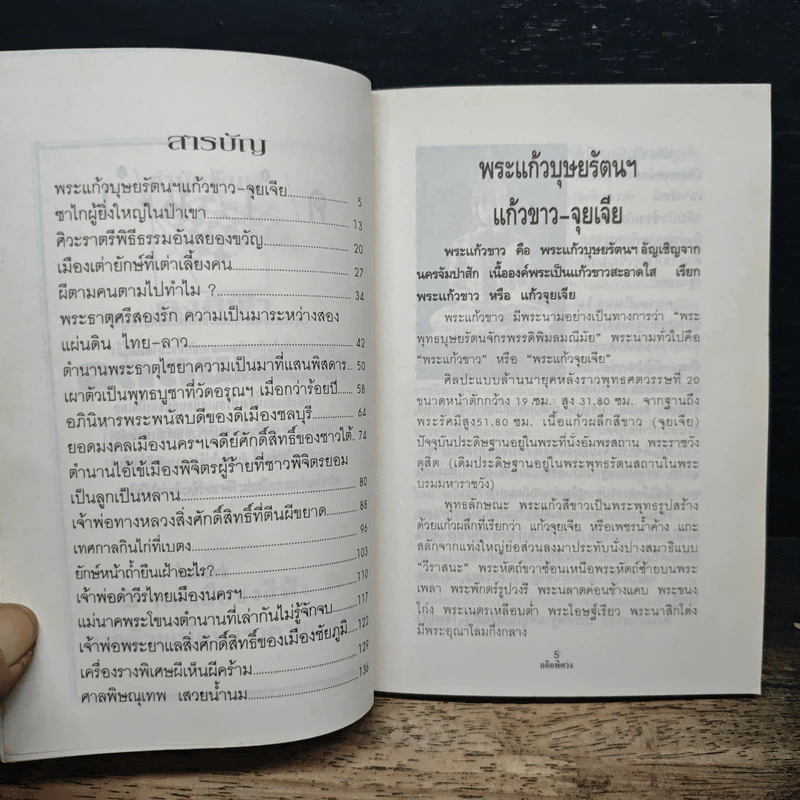 สารบัญ
พระแก้วบุษยรัตนฯแก้วขาว-จุยเจีย 5
ซาไกผู้ยิ่งใหญ่ในป่าเขา 13
ศิวะราตรีพิธีธรรมอันสยองขวัญ 20
เมืองเต่ายักษ์ที่เต่าเลี้ยงคน 27
ผีตามคนตามไปทำไม ? 34
พระธาตุศรีสองรัก ความเป็นมาระหว่างสอง
แผ่นดิน ไทย-ลาว 42
ตำนานพระธาตุไชยาความเป็นมาที่แสนพิสดาร 50
เผาตัวเป็นพุทธบูชาที่วัดอรุณฯ เมื่อกว่าร้อยปี 58
อภินิหารพระพนัสบดีของดีเมืองชลบุรี 64
ยอดมงคลเมืองนครฯเจดีย์ศักดิ์สิทธิ์ของชาวใต้ 74
ตำนานไอ้เข้เมืองพิจิตรผู้ร้ายที่ชาวพิจิตรยอม
เป็นลูกเป็นหลาน 80
เจ้าพ่อทางหลวงสิ่งศักดิ์สิทธิ์ที่ตีนผีขยาด 88
เทศกาลกินไก่ที่เบตง 96
ยักษ์หน้าถ้ำยืนเฝ้าอะไร? 103
เจ้าพ่อดำวีรไทยเมืองนครฯ 110
แม่นาคพระโขนงตำนานที่เล่ากันไม่รู้จักจบ 117
เจ้าพ่อพระยาแลสิ่งศักดิ์สิทธิ์ของเมืองชัยภูมิ 122
เครื่องรางพิเศษผีเห็นผีคร้าม 129
ศาลพิษณุเทพ เสวยน้ำนม 136
พระแก้วบุษยรัตนฯ
แก้วขาว-จุยเจีย
พระแก้วขาว คือ พระแก้วบุษยรัตนฯ อัญเชิญจาก
นครจัมปาสัก เนื้อองค์พระเป็นแก้วขาวสะอาดใส เรียก
พระแก้วขาว หรือ แก้วจุยเจีย
พระแก้วขาว มีพระนามอย่างเป็นทางการว่า “พระ
พุทธบุษยรัตนจักรพรรดิพิมลมณีมัย” พระนามทั่วไปคือ
“พระแก้วขาว” หรือ “พระแก้วจุยเจีย”
ศิลปะแบบล้านนายุคหลังราวพุทธศตวรรษที่ 20
ขนาดหน้าตักกว้าง 19 ซม. สูง 31.80 ซม. จากฐานถึง
พระรัศมีสูง51.80 ซม. เนื้อแก้วผลึกสีขาว (จุยเจีย)
ปัจจุบันประดิษฐานอยู่ในพระที่นั่งอัมพรสถาน พระราชวัง
ดุสิต (เดิมประดิษฐานอยู่ในพระพุทธรัตนสถานในพระ
บรมมหาราชวัง)
พุทธลักษณะ พระแก้วสีขาวเป็นพระพุทธรูปสร้าง
ด้วยแก้วผลึกที่เรียกว่า แก้วจุยเจีย หรือเพชรน้ำค้าง แกะ
สลักจากแท่งใหญ่ย่อส่วนลงมาประทับนั่งปางสมาธิแบบ
“วีราสนะ” พระหัตถ์ขวาซ้อนเหนือพระหัตถ์ซ้ายบนพระ
เพลา พระพักตร์รูปวงรี พระนลาตค่อนข้างแคบ พระขนง
โก่ง พระเนตรเหลือบต่ำ พระโอษฐ์เรียว พระนาสิกโด่ง
มีพระอุณาโลมกึ่งกลาง
5
อดีตพิศวง